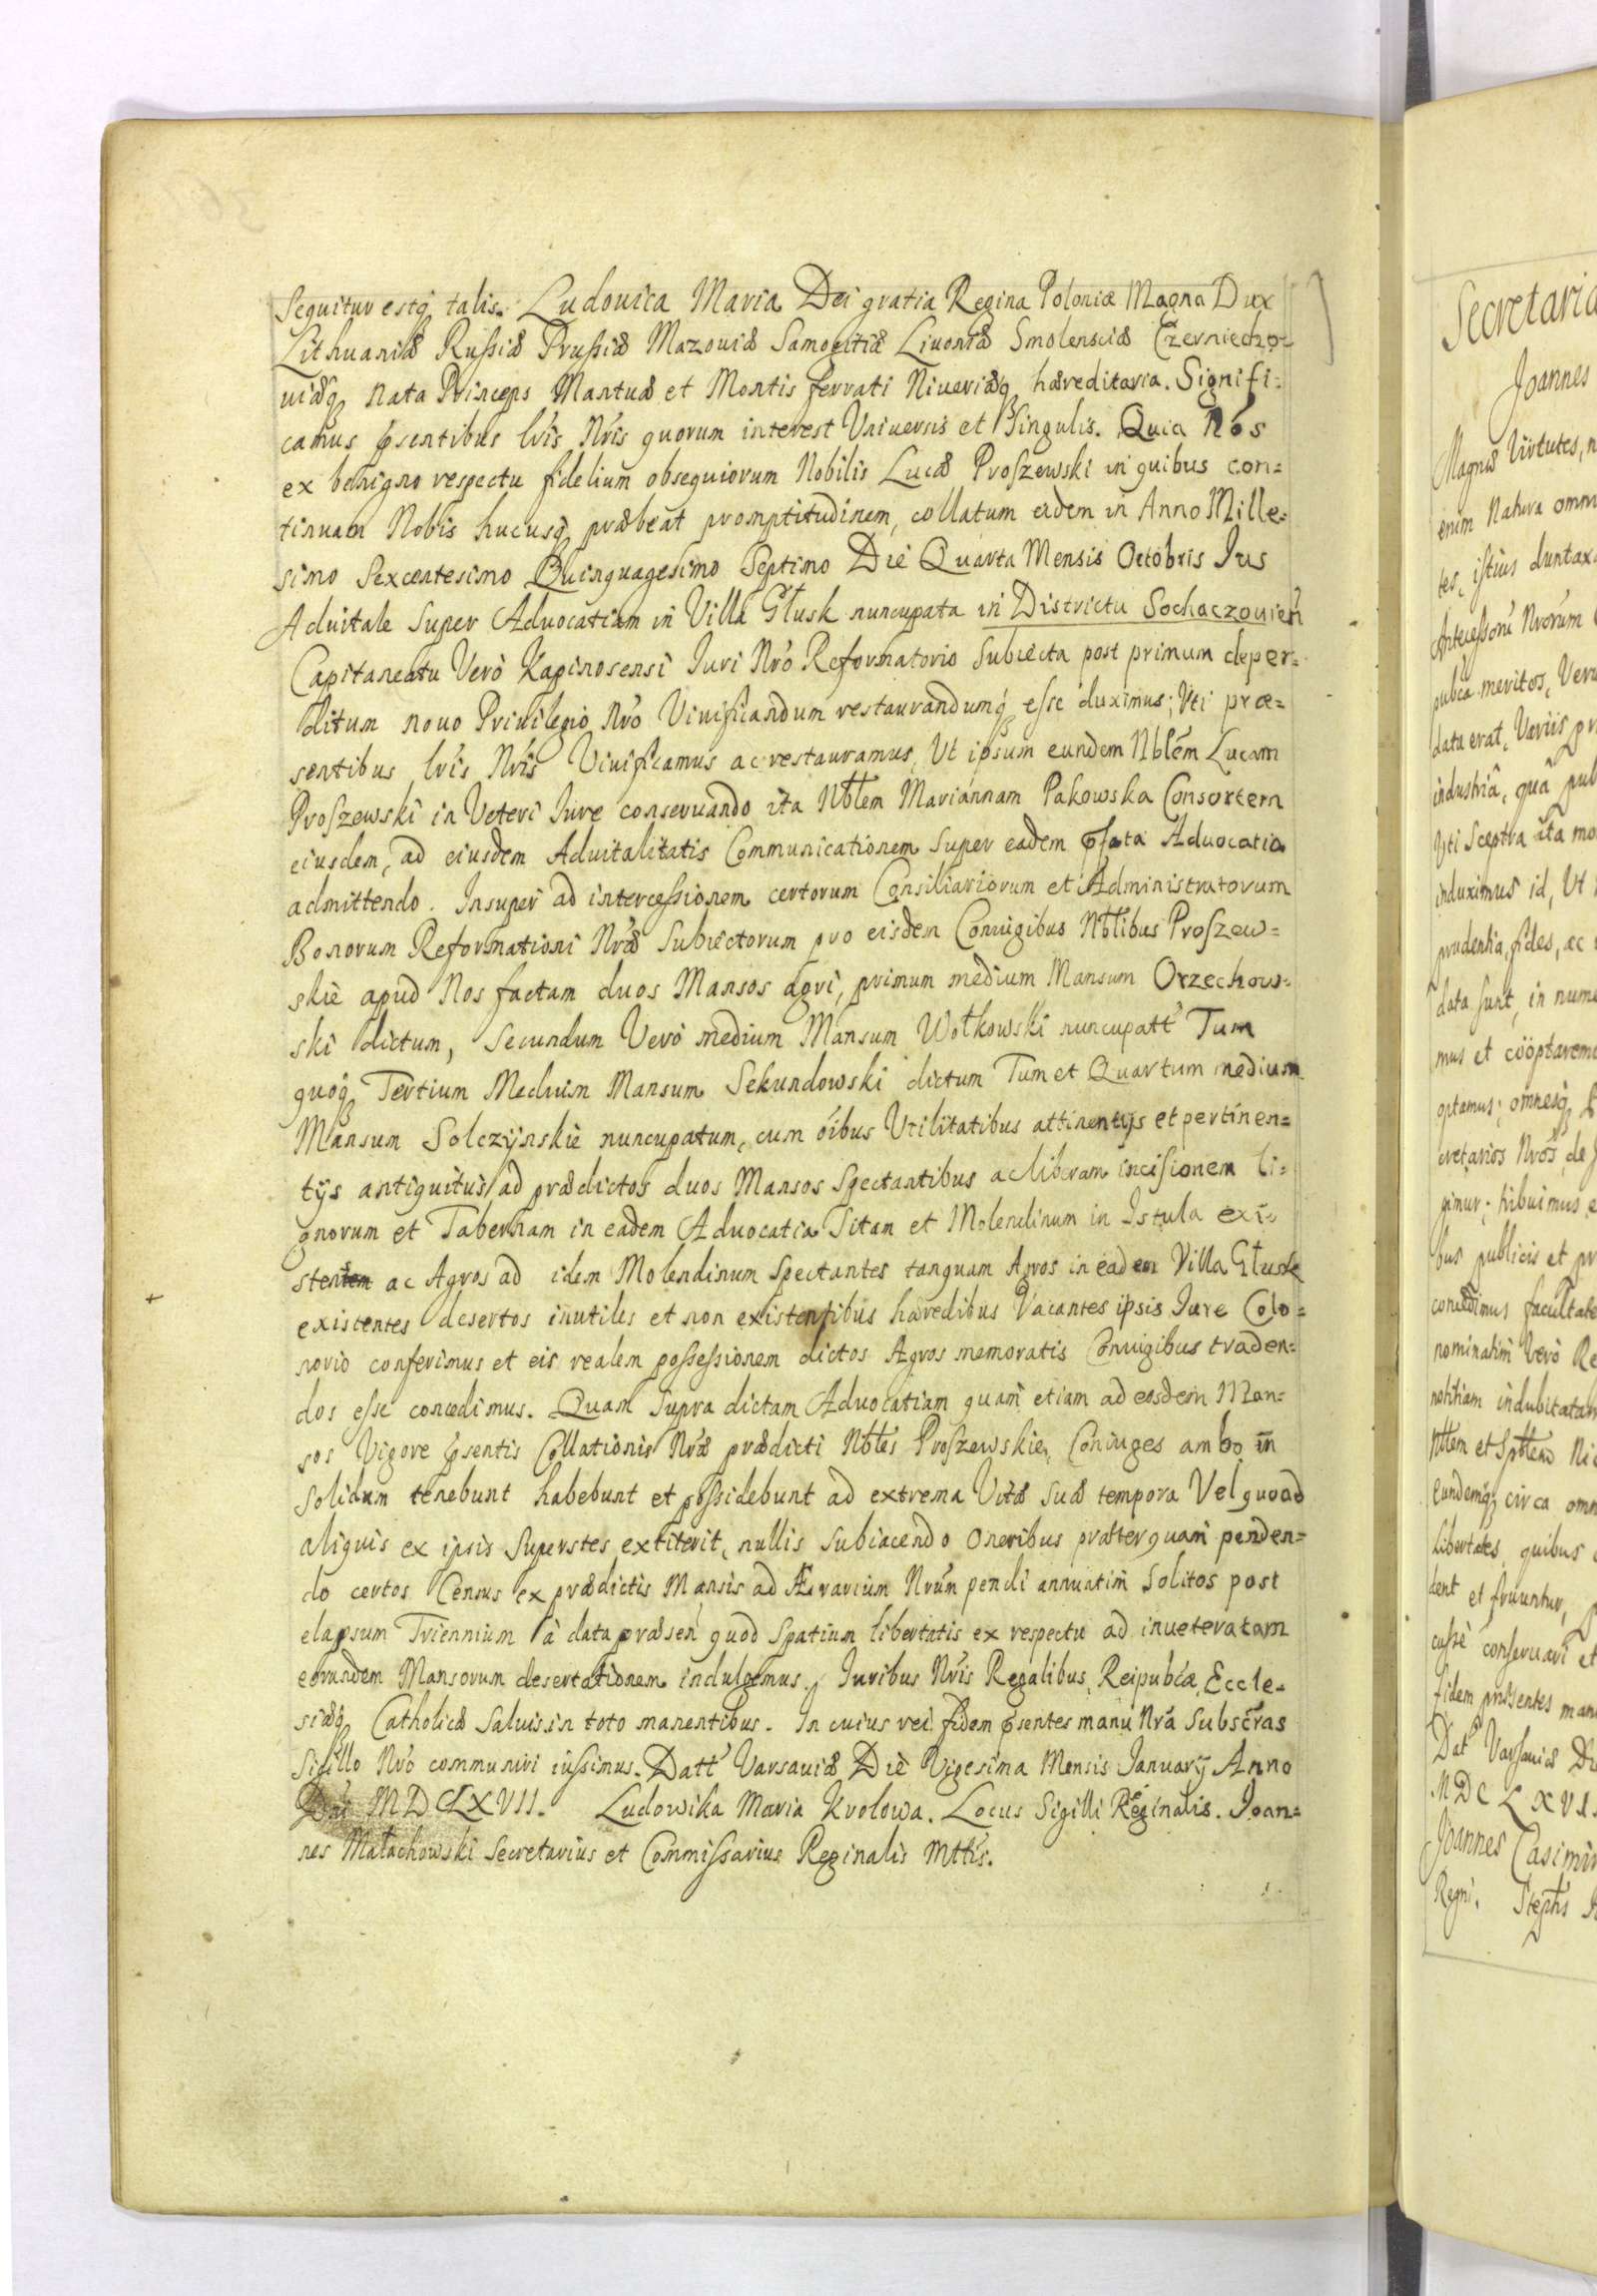 Sequitur estq̃ talis. Ludovica Maria Dei gratia Regina Poloniæ Magna Dux
Lithuaniæ Russiæ Prussiæ Mazouiæ Samogitiæ Liuoniæ Smolensciæ Czerniecho=
uiæq̃ nata Princeps Mantuæ et Montis ferrati Niueriæq̃ hæreditaria. Signifi=
camus p̃sentibus lr̃is Nr̃is quorum interest Vniuersis et Singulis. Quia Nos
ex benigno respectu fidelium obsequiorum Nobilis Lucæ Proszewski in quibus con=
tinuam Nobis hucusq̃ præbeat promptitudinem, collatum eidem in Anno Mille=
simo Sexcentesimo Quinquagesimo Septimo Die Quarta Mensis Octobris Ius
Aduitale Super Aduocatiam in Villa Głusk nuncupata in Districtu Sochaczouień
Capitaneatu Verò Kapinosensi Iuri Nr̃o Reformatorio Subiecta post primum deper=
ditum nouo Priuilegio Nr̃o Viuificandum restaurandumq̃ esse duximus; Vti præ=
sentibus lr̃is Nr̃is Viuificamus ac restauramus, Ut ipsum eundem Nblẽm Lucam
Proszewski in Veteri Iure conseruando ita Nbłem Mariannam Pakowska Consortem
eiusdem, ad eiusdem Aduitalitatis Communicationem Super eadem p̃fata Aduocatia
admittendo. Insuper ad intercessionem certorum Consiliariorum et Administratorum
Bonorum Reformationi Nr̃æ Subiectorum pro eisdem Coniugibus Nbłibus Proszew=
skie apud Nos factam duos Mansos agri, primum medium Mansum Orzechow=
ski dictum, Secundum Verò medium Mansum Wołkowski nuncupatt̃ Tum
quoq̃ Tertium Medium Mansum Sekundowski dictum Tum et Quartum medium
Mansum Solczynskie nuncupatum, cum õibus Vtilitatibus attinentijs et pertinen=
tijs antiquitus ad prædictos duos Mansos Spectantibus ac liberam incisionem li=
gnorum et Tabernam in eadem Aduocatia Sitam et Molendinum in Istula exi=
stentem ac Agros ad idem Molendinum Spectantes tanquam Agros in eadem Villa Głusk
existentes desertos inutiles et non existentibus hæredibus Vacantes ipsis Iure Colo=
norio conferimus et eis realem possessionem dictos Agros memoratis Coniugibus traden=
dos esse concedimus. Quam Supra dictam Aduocatiam quam etiam ad eosdem Man=
sos Vigore p̃sentis Collationis Nr̃æ prædicti Nbłes Proszewskie, Coniuges ambo in
Solidum tenebunt habebunt et possidebunt ad extrema Vitæ Suæ tempora Vel quoad
aliquis ex ipsis Superstes extiterit, nullis Subiacendo Oneribus præterquam penden=
do certos Census ex prædictis Mansis ad Ærarium Nr̃um pendi annuatim Solitos post
elapsum Triennium à data præsen̄ quod Spatium libertatis ex respectu ad inueteratam
eorundem Mansorum desertationem indulgemus. Iuribus Nr̃is Regalibus, Reipubc̃æ, Eccle=
siæq̃ Catholicæ Saluis in toto manentibus. In cuius rei fidem p̃sentes manu Nr̃a Subsc̃ras
Sigillo Nr̃o communiri iussimus. Datt̃ Varsauiæ Die Vigesima Mensis Ianuarij Anno
Dñi MDCLXVII. Ludowika Maria Krolowa. Locus Sigilli Reginalis. Ioan=
nes Małachowski Secretarius et Commissarius Reginalis Mttis.
Secretaria
Joannes
Magnæ Virtutes, n
enim Natura omn
tes, istius duntax
Antecessorũ Nrorũm
pubca meritos, Veru
data erat, Variis pr
industriâ, quâ pub
Vti Sceptra ita mo
induximus id, Ut
prudentia, fides, ac
data sunt, in nume
mus et cöoptavem
optamus; omnesq̃
cretarios Nrõs de
gimur; tribuimus e
bus publicis et pr
concedimus facultate
nominatim Verò Re
notitiam indubitatam
Nbłem et Spb̃lem Ni
Eundemq̃ circa omn
Libertates quibus
dent et fruuntur,
cussè conseruari et
fidem præsentes man
Dat Varsauiæ Di
MDCLXVI
Joannes Casimir
Regni. Stephs